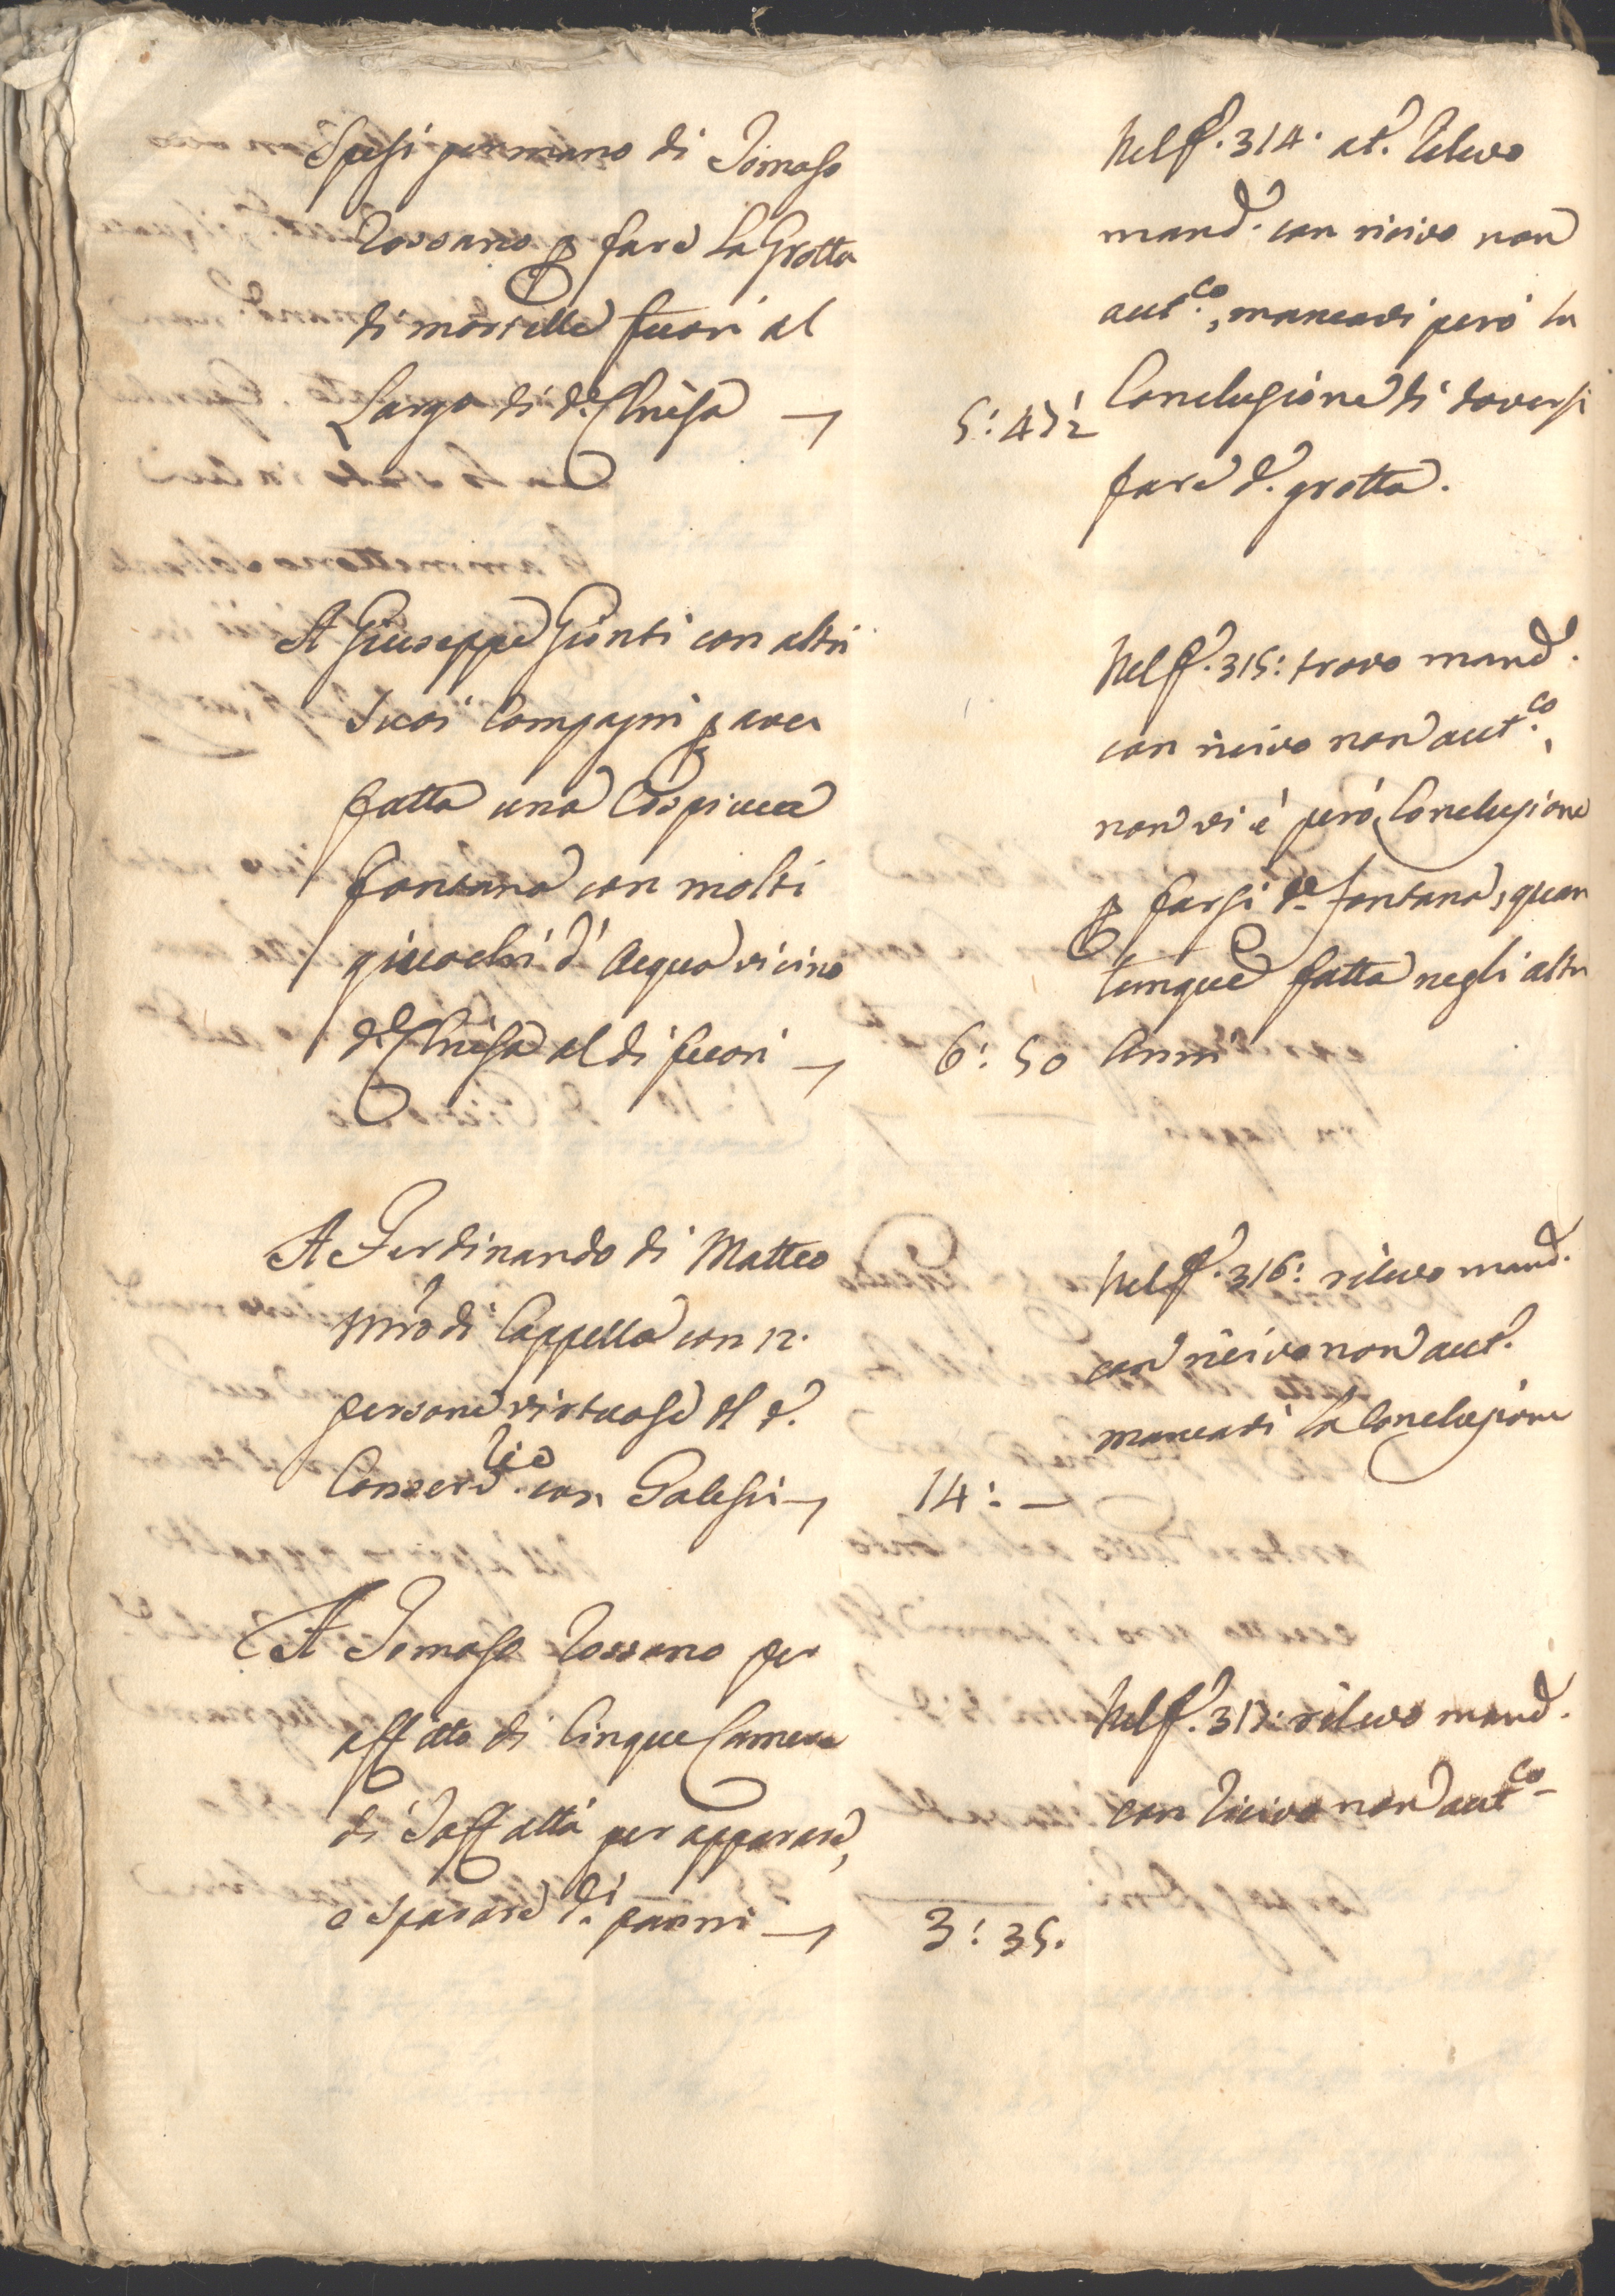 Spesi per mano di Tomaso
Rossano p fare la Grotta
di mortelle fuori al
Largo di d.ª Chiesa
5: 47½
Nel f.º 314. at.º Rilevo
mand.º con ricivo non
aut.co, mancavi però la
Conclusione di doversi
fare d.ª grotta.
A Giuseppe Gionti con altri
suoi Compagni p aver
fatta una Cospicua
fontana con molti
giuochi d'Acqua vicino
d.ª Chiesa al di fuori
6: 50
Nel f.º 315: trovo mand.º
con ricivo non aut.co,
non vi è però Conclusione
p farsi d.ª fontana, quan
tunque fatta negli altri
Anni
A Ferdinando di Matteo
Mrō di Cappella con 12.
persone virtuose del d.º
Conserv.rio con Galessi
14: —
Nel f.º 316: rilevo mand.º
con ricivo non aut.º
mancavi la Conclusione
A Tomaso Rossano per
affitto di Cinque Camere
di Taffattà per apparare,
e sparare d.i panni
3: 35.
Nel f.º 317: rilevo mand.º
con ricivo non aut.co